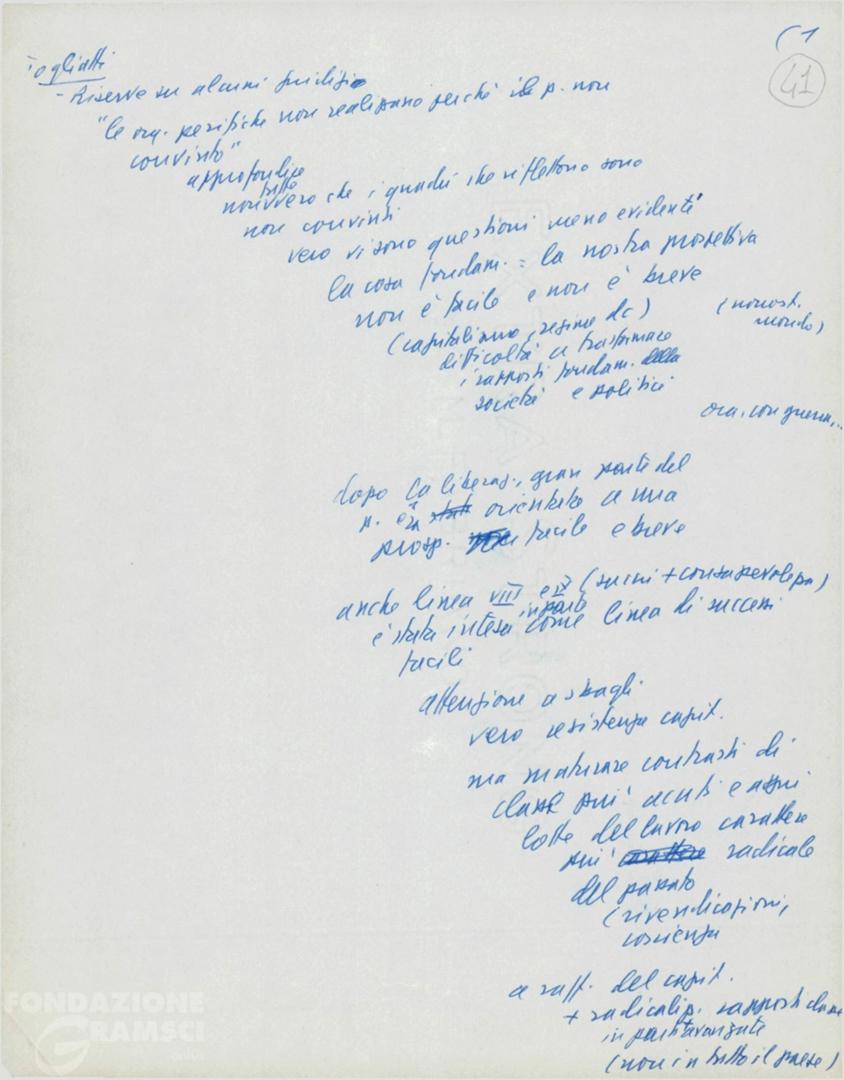 (1
41
Togliatti
- Riserve su alcuni giudizi
"le org. periferiche non realizzano perché il p. non
convinto"
approfondire
tutto
non vero che i quadri che riflettono sono
non convinti
vero vi sono questioni meno evidenti
la cosa fondam. = la nostra prospettiva
non è facile e non è breve
(capitalismo, regime dc)
(nonost.
mondo)
difficoltà a trasformare
i rapporti fondam. della
società e politici
ora, con guerra...
dopo la liberaz., gran parte del
p. era stata orientata a una
prosp. facile e breve
anche linea VIII e IX (sui ni + consapevolezza)
in parte
è stata intesa come linea di successi
facili
attenzione a sbagli
vero resistenza capit.
ma maturare contrasti di
classe più acuti e aspri
lotte del lavoro carattere
più carattere radicale
del passato
(rivendicazioni,
coscienza
a raff. del capit.
+ radicalizz. rapporti classe
in parti avanzate
(non in tutto il paese)
FONDAZIONE
GRAMSCI